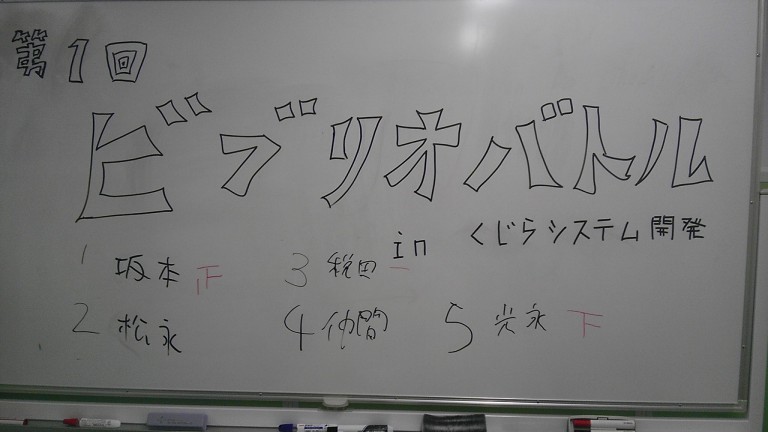 第1回
ビブリオバトル
in くじらシステム開発
1 坂本 正 3 税田 一
2 松永 4 仲間 5 光永 下